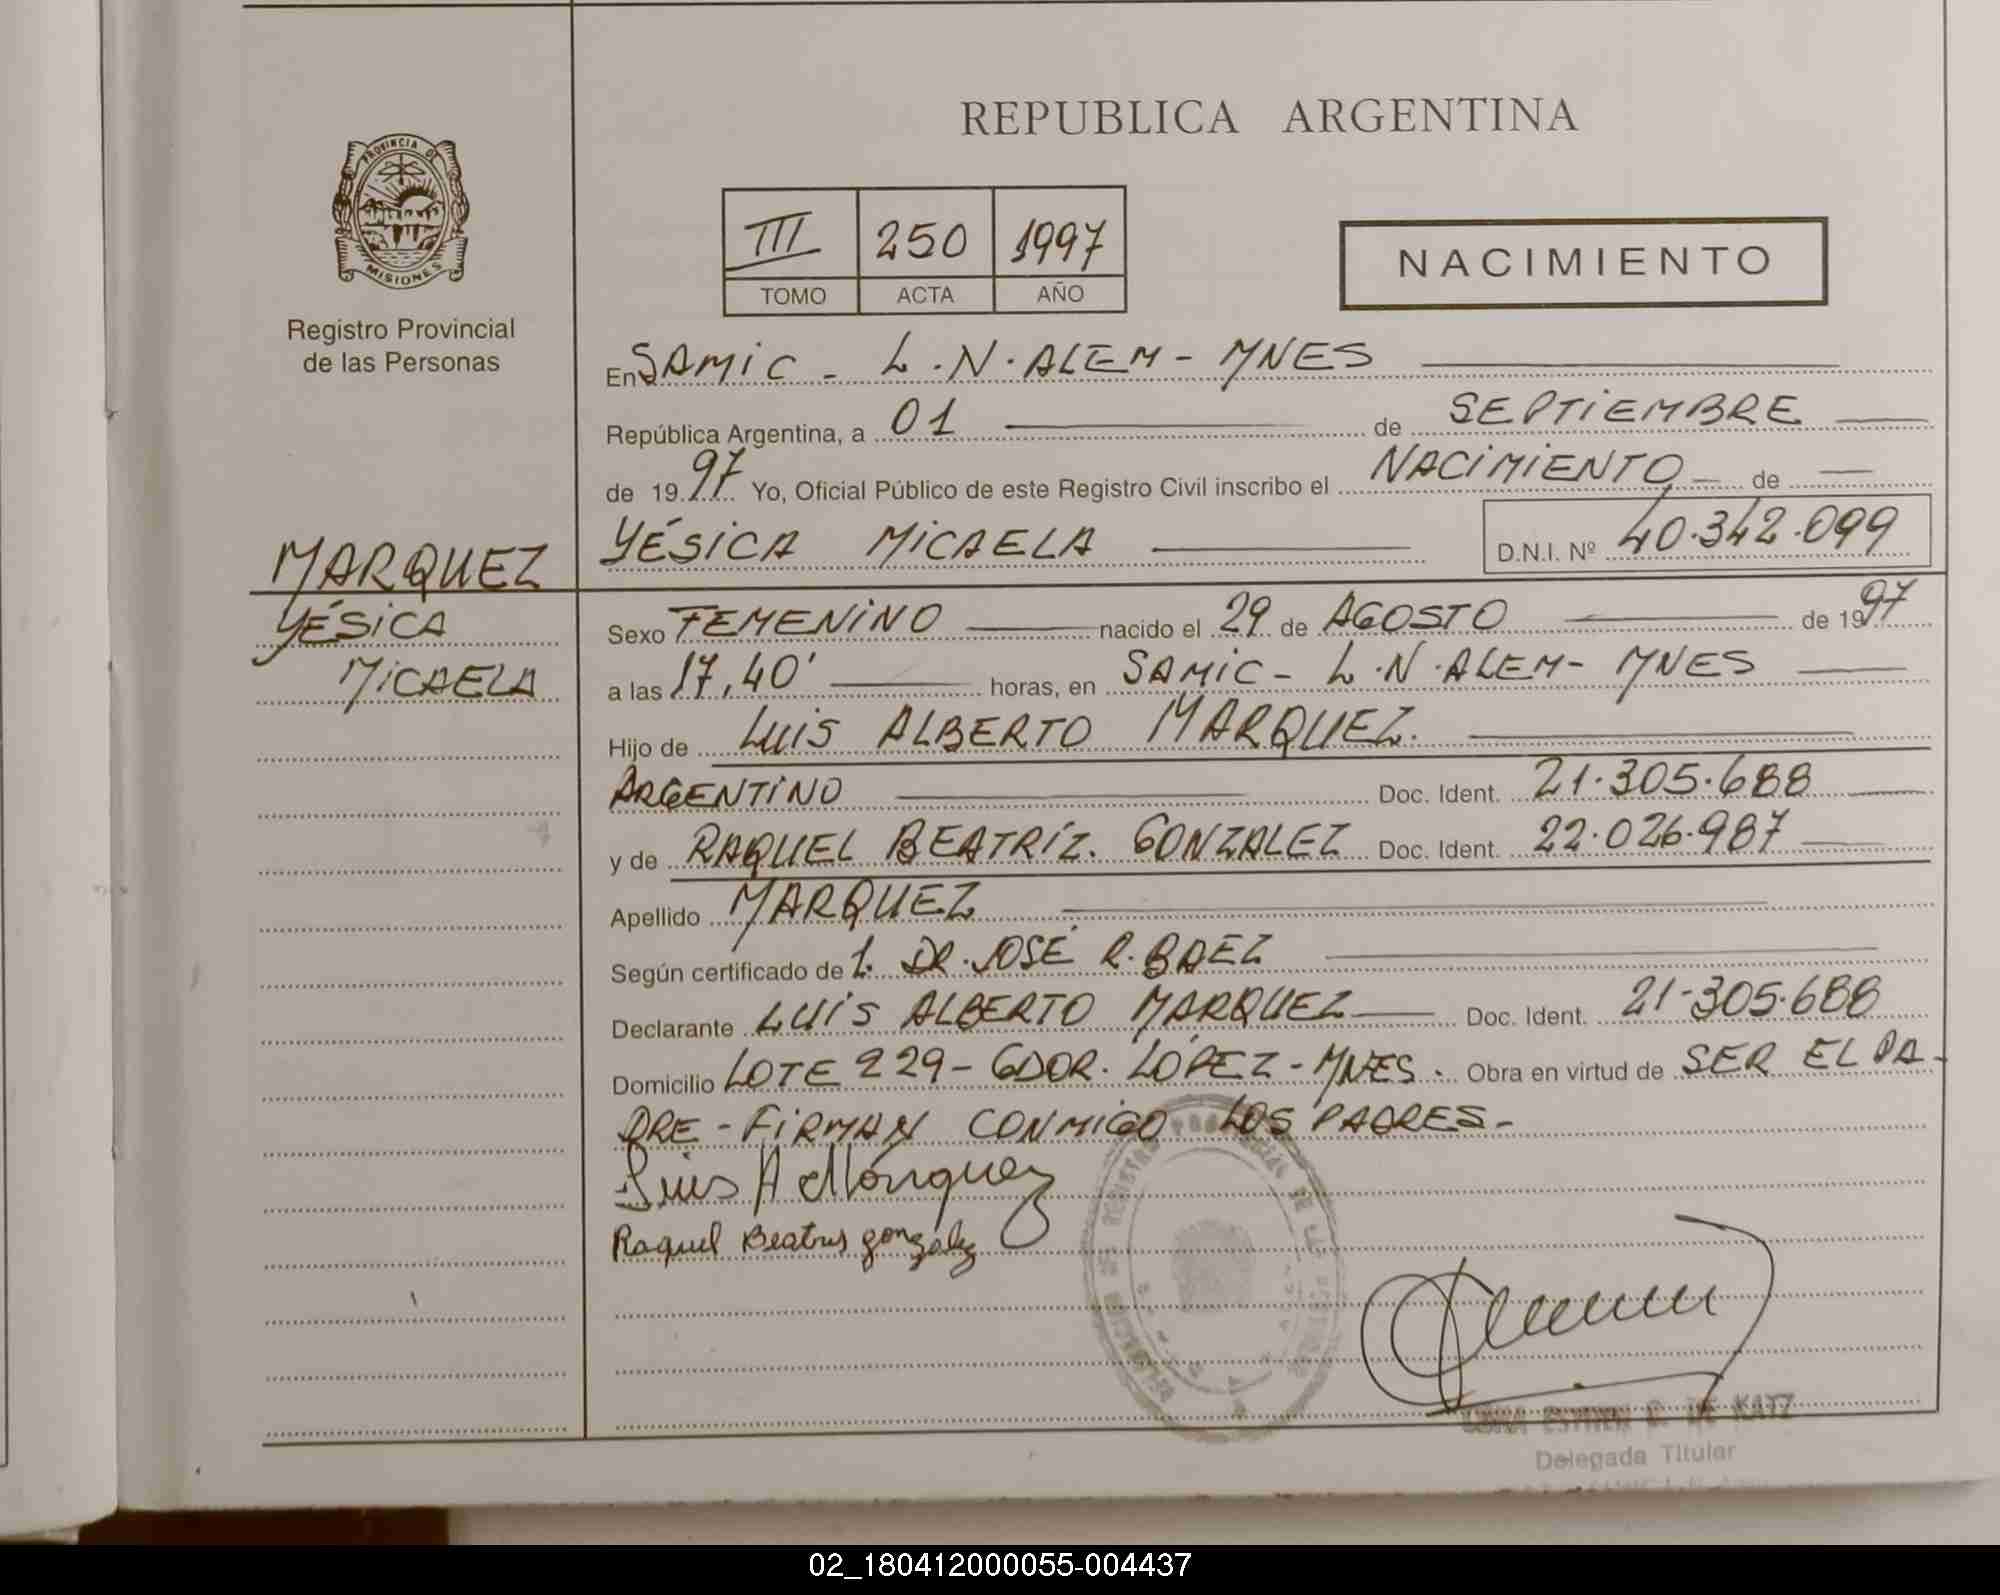 REPUBLICA ARGENTINA
PROVINCIA DE
MISIONES
Registro Provincial
de las Personas
III 250 1997
TOMO ACTA AÑO
NACIMIENTO
En SAMIC - L.N.ALEM - MNES
República Argentina, a 01 de SEPTIEMBRE
de 1997 Yo, Oficial Público de este Registro Civil inscribo el NACIMIENTO de
YÉSICA MICAELA D.N.I. Nº 40.342.099
MARQUEZ
YÉSICA
MICAELA
Sexo FEMENINO nacido el 29 de AGOSTO de 1997
a las 17,40' horas, en SAMIC - L.N.ALEM - MNES
Hijo de LUIS ALBERTO MARQUEZ.
ARGENTINO Doc. Ident. 21.305.688
y de RAQUEL BEATRÍZ. GONZALEZ Doc. Ident. 22.026.987
Apellido MARQUEZ
Según certificado de 1. DR. JOSÉ R. BAEZ
Declarante LUIS ALBERTO MARQUEZ Doc. Ident. 21.305.688
Domicilio LOTE 229 - GDOR. LÓPEZ - MNES. Obra en virtud de SER EL PA-
DRE - FIRMAN CONMIGO LOS PADRES -
Luis A Márquez
Raquel Beatris gonzález
ESTHER C. DE KATZ
Delegada Titular
02_180412000055-004437